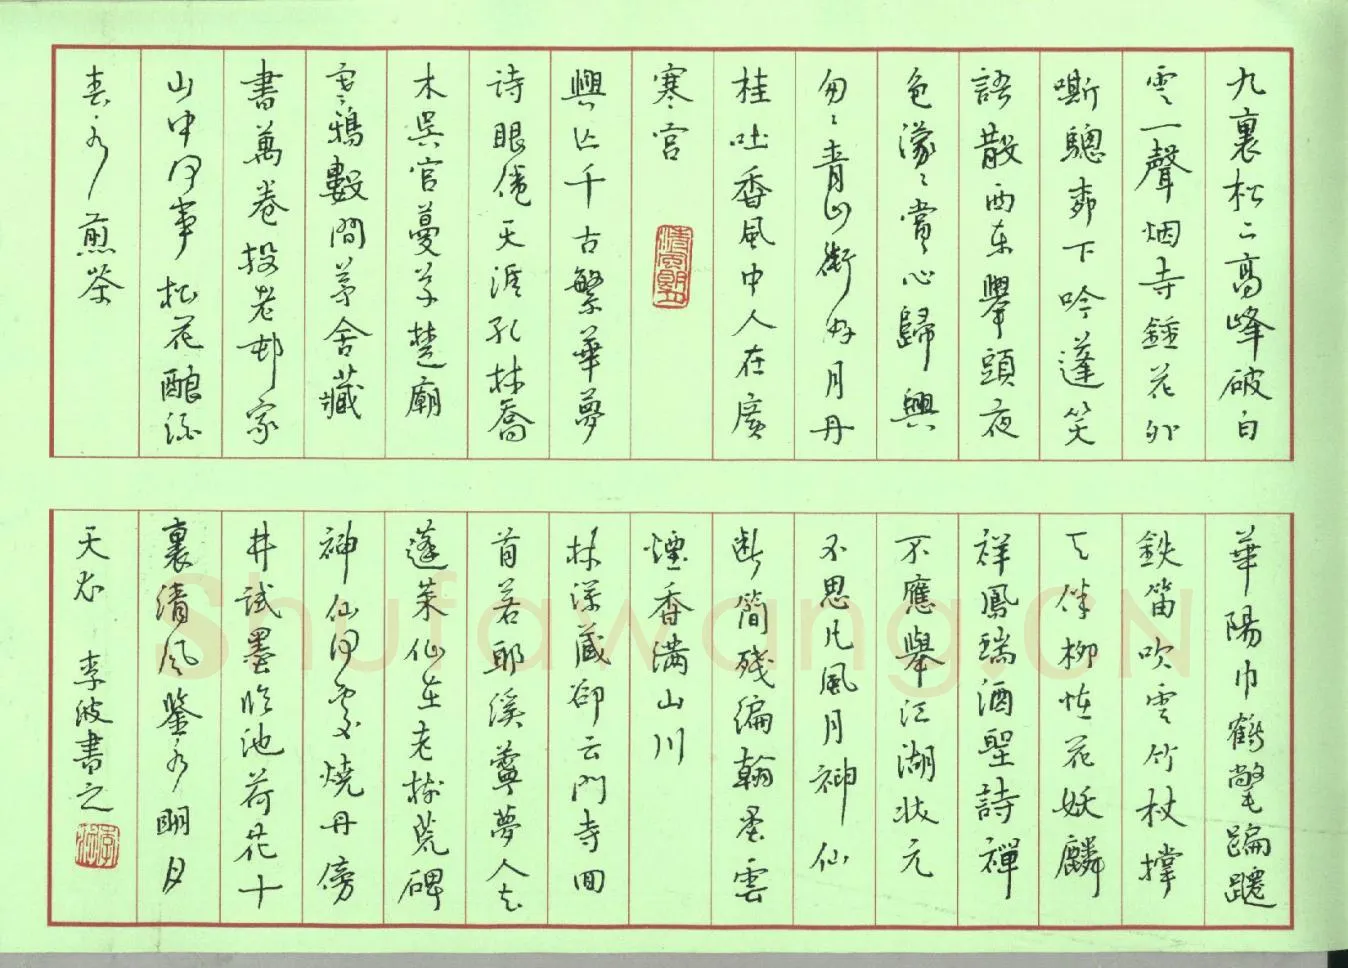 九裏松二高峰破白
雲一聲烟寺鍾花外
嘶驄柳下吟蓬笑
語散西东舉頭夜
色濛々賞心歸興
匆々青山銜好月丹
桂吐香風中人在廣
寒宫
興亡千古繁華夢
詩眼倦天涯孔林喬
木吳官蔓草楚廟
寒鴉數間茅舍藏
書萬卷投老邨家
山中何事松花酿酒
春水煎茶
華陽巾鶴氅蹁躚
鉄笛吹雲竹杖撑
天伴柳怪花妖麟
祥鳳瑞酒聖詩禪
不應舉江湖状元
不思凡風月神仙
断簡殘編翰墨雲
煙香满山川
林深藏卻云門寺回
首若耶溪苧夢人去
蓬萊仙在老樹荒碑
神仙何處燒丹傍
井試墨臨池荷花十
裏清风鑒水明月
天衣 李波書之
Shufawang.CN